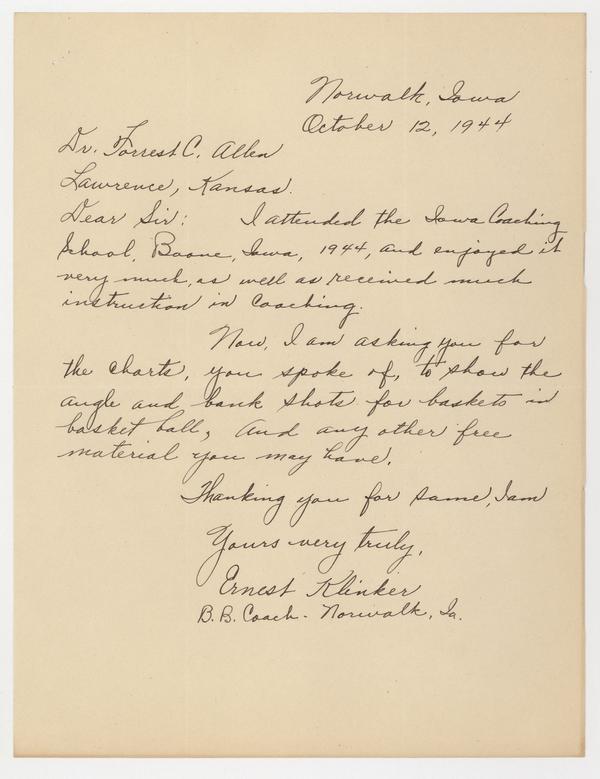 Norwalk, Iowa
October 12, 1944
Dr. Forrest C. Allen
Lawrence, Kansas.
Dear Sir: I attended the Iowa Coaching
School, Boone, Iowa, 1944, and enjoyed it
very much, as well as received much
instruction in coaching.
Now, I am asking you for
the charts, you spoke of, to show the
angle and bank shots for baskets in
basket ball, and any other free
material you may have.
Thanking you for same, I am
Yours very truly,
Ernest Klinker
B.B. Coach - Norwalk, Ia.